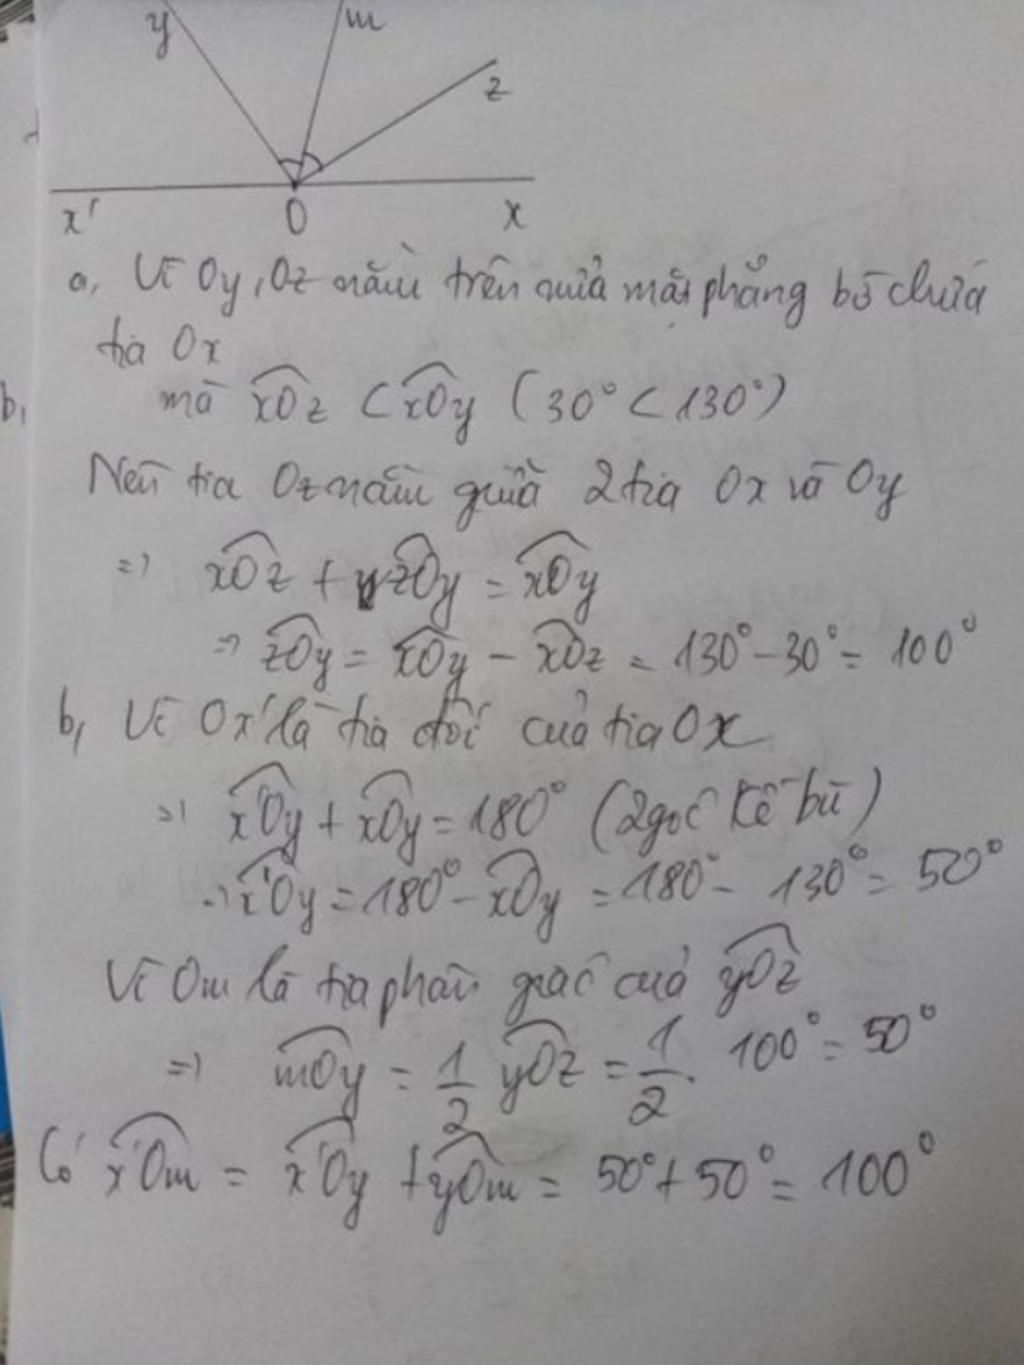 y m
z
x' O x
a, Vì Oy, Oz nằm trên nửa mặt phẳng bờ chứa
tia Ox
b, mà xOz < xOy (30° < 130°)
Nên tia Oz nằm giữa 2 tia Ox và Oy
=> xOz + zOy = xOy
=> zOy = xOy - xOz = 130° - 30° = 100°
b, Vì Ox' là tia đối của tia Ox
=> x'Oy + xOy = 180° (2 góc kề bù)
=> x'Oy = 180° - xOy = 180° - 130° = 50°
Vì Om là tia phân giác của yOz
=> mOy = 1/2 yOz = 1/2 . 100° = 50°
Có x'Om = x'Oy + yOm = 50° + 50° = 100°